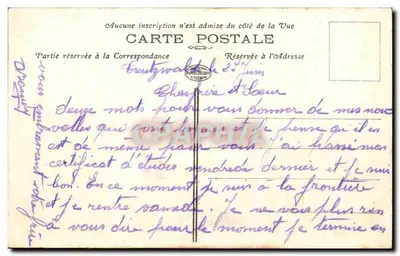 Aucune inscription n'est admise du côté de la Vue
CARTE POSTALE
Partie réservée à la Correspondance
Réservée à l'Adresse
Creutzwald le 2 juin
Cher frère et Sœur
deux mots pour vous donner de mes nou
velles qui vont bien et je pense qu'il en
est de même pour vous j'ai passé mon
certificat d'études vendredi dernier et je suis
bon. En ce moment je suis à la frontière
et je rentre samedi. Je ne vois plus rien
à vous dire pour le moment je termine en
vous embrassant votre frère